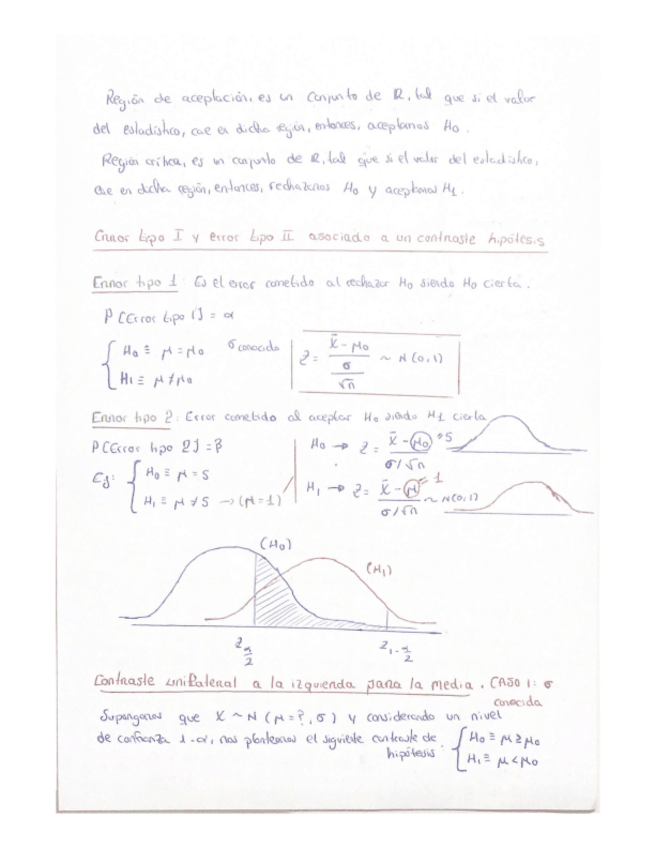 Región de aceptación, es un conjunto de ℝ, tal que si el valor
del estadístico, cae en dicha región, entonces, aceptamos H₀.
Región crítica, es un conjunto de ℝ, tal que si el valor del estadístico,
cae en dicha región, entonces, rechazamos H₀ y aceptamos H₁.
Error tipo I y error tipo II asociado a un contraste hipótesis
Error tipo 1: Es el error cometido al rechazar H₀ siendo H₀ cierta.
P[Error tipo 1] = α
{ H₀ ≡ μ = μ₀ σ conocida
H₁ ≡ μ ≠ μ₀
Z = (x̄ - μ₀) / (σ/√n) ~ N(0,1)
Error tipo 2: Error cometido al aceptar H₀ siendo H₁ cierta
P[Error tipo 2] = β
Ej: { H₀ ≡ μ = 5
H₁ ≡ μ ≠ 5 → (μ=1)
H₀ → Z = (x̄ - μ₀) / (σ/√n) = 5
H₁ → Z = (x̄ - μ) / (σ/√n) = 1 ~ N(0,1)
(H₀)
(H₁)
Z α/2
Z 1-α/2
Contraste unilateral a la izquierda para la media. CASO 1: σ
conocida
Supongamos que X ~ N(μ=?, σ) y considerando un nivel
de confianza 1-α, nos planteamos el siguiente contraste de
hipótesis: { H₀ ≡ μ ≥ μ₀
H₁ ≡ μ < μ₀